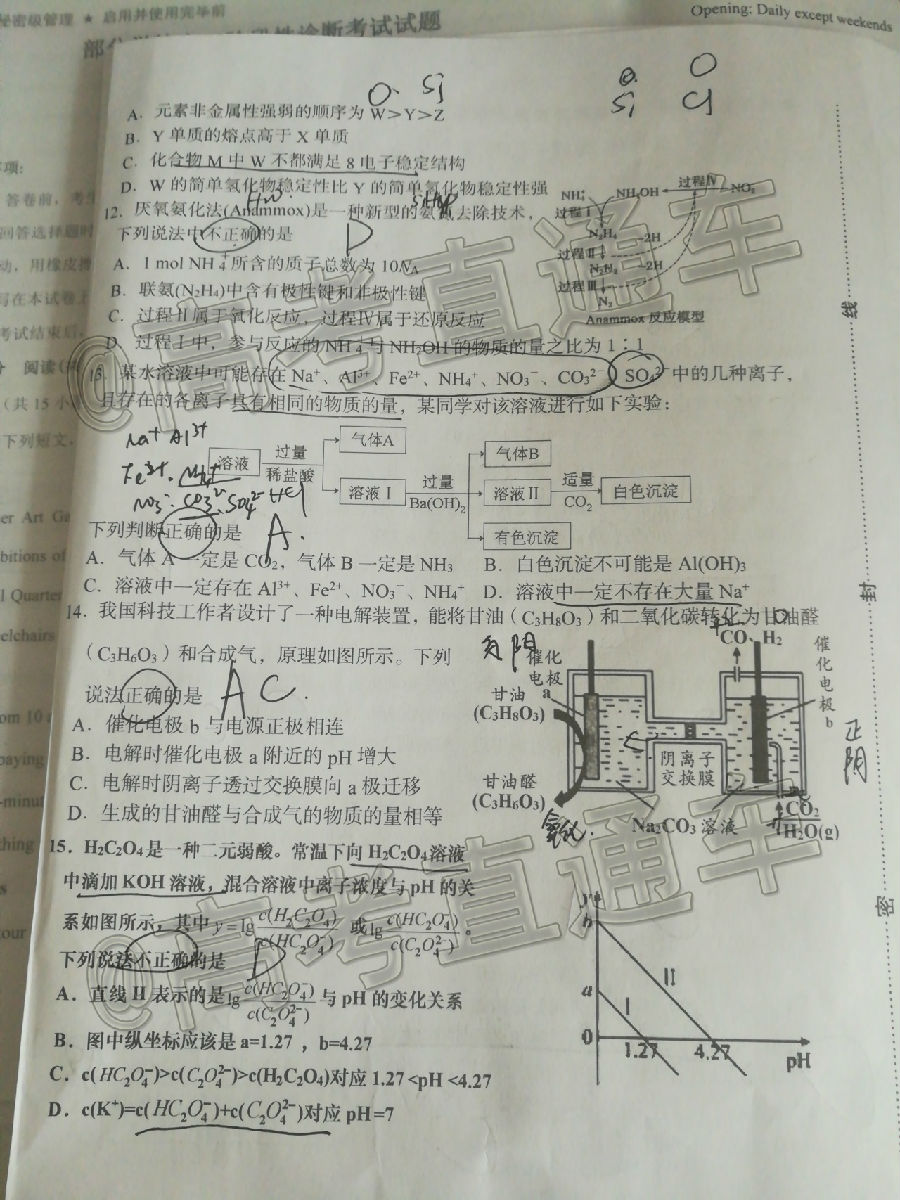 秘密级管理 ★ 启用并使用完毕前
Opening: Daily except weekends
诊断考试试题
O Si
Si Cl
O
A．元素非金属性强弱的顺序为 W>Y>Z
B．Y 单质的熔点高于 X 单质
C．化合物 M 中 W 不都满足 8 电子稳定结构
D．W 的简单氢化物稳定性比 Y 的简单氢化物稳定性强
12．厌氧氨化法(Anammox)是一种新型的氨氮去除技术，
下列说法中不正确的是 D
A．1 mol NH₄⁺所含的质子总数为 10Nₐ
B．联氨(N₂H₄)中含有极性键和非极性键
C．过程Ⅱ属于氧化反应，过程Ⅳ属于还原反应
D．过程Ⅰ中，参与反应的NH₄⁺与NH₂OH的物质的量之比为 1∶1
NH₄⁺ NH₂OH 过程Ⅳ NO₂⁻
过程Ⅰ
N₂H₄ -2H
过程Ⅱ
N₂H₂ -2H
过程Ⅲ
N₂
Anammox 反应模型
13．某水溶液中可能存在 Na⁺、Al³⁺、Fe²⁺、NH₄⁺、NO₃⁻、CO₃²⁻、SO₄²⁻中的几种离子，
且存在的各离子具有相同的物质的量，某同学对该溶液进行如下实验：
Na⁺ Al³⁺
溶液 过量 稀盐酸 气体A
溶液Ⅰ 过量 Ba(OH)₂ 气体B
溶液Ⅱ 适量 CO₂ 白色沉淀
有色沉淀
NO₃⁻ CO₃²⁻ SO₄²⁻ HCl
下列判断正确的是 A.
A．气体 A 一定是 CO₂，气体 B 一定是 NH₃ B．白色沉淀不可能是 Al(OH)₃
C．溶液中一定存在 Al³⁺、Fe²⁺、NO₃⁻、NH₄⁺ D．溶液中一定不存在大量 Na⁺
14．我国科技工作者设计了一种电解装置，能将甘油（C₃H₈O₃）和二氧化碳转化为甘油醛
（C₃H₆O₃）和合成气，原理如图所示。下列
说法正确的是 A C
A．催化电极 b 与电源正极相连
B．电解时催化电极 a 附近的 pH 增大
C．电解时阴离子透过交换膜向 a 极迁移
D．生成的甘油醛与合成气的物质的量相等
阴
催化
电极
a
CO、H₂
催化电极b
甘油
(C₃H₈O₃)
阴离子
交换膜
正
阴
甘油醛
(C₃H₆O₃)
Na₂CO₃ 溶液
CO₂
H₂O(g)
氧化.
15．H₂C₂O₄是一种二元弱酸。常温下向 H₂C₂O₄溶液
中滴加 KOH 溶液，混合溶液中离子浓度与 pH 的关
系如图所示，其中 y=lg c(H₂C₂O₄)/c(HC₂O₄⁻) 或lg c(HC₂O₄⁻)/c(C₂O₄²⁻)。
下列说法不正确的是 D
A．直线 II 表示的是lg c(HC₂O₄⁻)/c(C₂O₄²⁻) 与 pH 的变化关系
B．图中纵坐标应该是 a=1.27 ，b=4.27
C．c(HC₂O₄⁻)>c(C₂O₄²⁻)>c(H₂C₂O₄)对应 1.27<pH<4.27
D．c(K⁺)=c(HC₂O₄⁻)+c(C₂O₄²⁻)对应 pH=7
y
b
a
0
I
II
1.27 4.27 pH
线
封
密
@高考直通车
@高考直通车